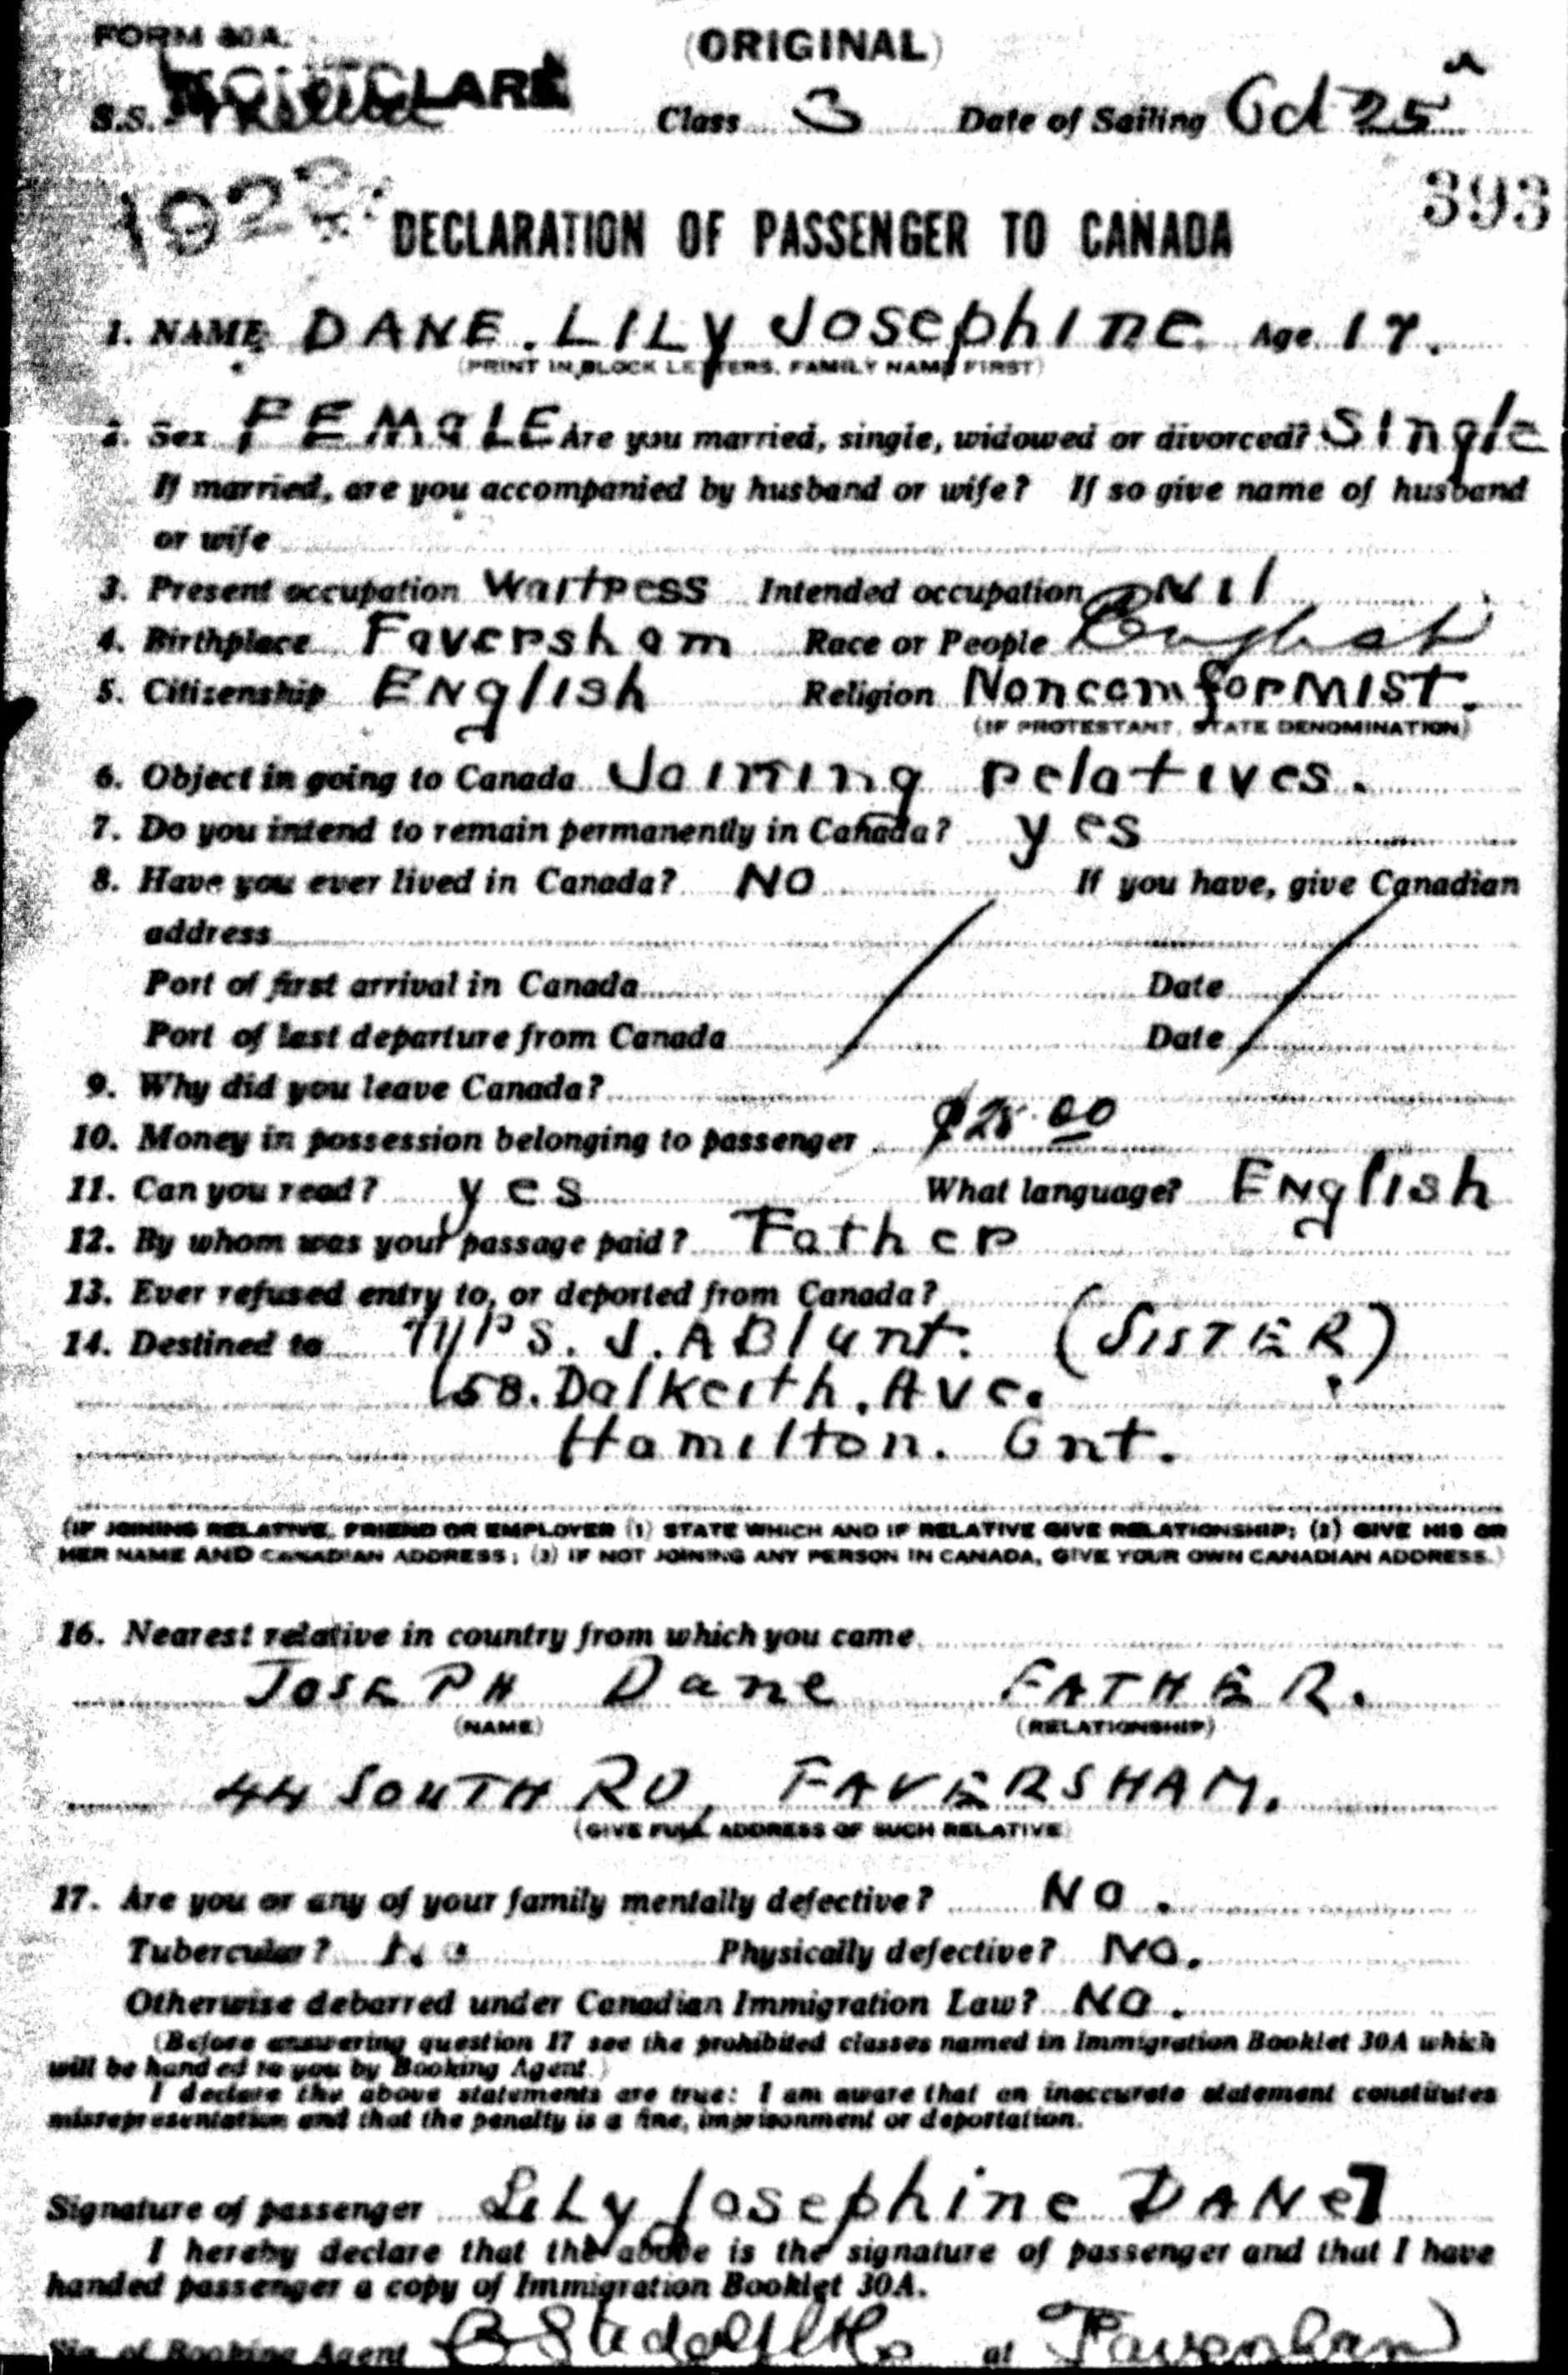 FORM 30A.
(ORIGINAL)
S.S. MONTCLARE Class 3 Date of Sailing Oct 25
393
DECLARATION OF PASSENGER TO CANADA
1. NAME DANE. LILY Josephine. Age 17.
(PRINT IN BLOCK LETTERS. FAMILY NAME FIRST)
2. Sex FEMaLE Are you married, single, widowed or divorced? Single
If married, are you accompanied by husband or wife? If so give name of husband
or wife
3. Present occupation Waitress Intended occupation Nil
4. Birthplace Faversham Race or People English
5. Citizenship ENglish Religion NoncomforMIST.
(IF PROTESTANT, STATE DENOMINATION)
6. Object in going to Canada Joining relatives.
7. Do you intend to remain permanently in Canada? yes
8. Have you ever lived in Canada? NO If you have, give Canadian
address
Port of first arrival in Canada Date
Port of last departure from Canada Date
9. Why did you leave Canada?
10. Money in possession belonging to passenger $25.00
11. Can you read? yes What language? ENglish
12. By whom was your passage paid? Father
13. Ever refused entry to, or deported from Canada?
14. Destined to Mrs. J. A Blunt. (SISTER)
158. Dalkeith. Ave.
Hamilton. Ont.
(IF JOINING RELATIVE, FRIEND OR EMPLOYER (1) STATE WHICH AND IF RELATIVE GIVE RELATIONSHIP; (2) GIVE HIS OR
HER NAME AND CANADIAN ADDRESS; (3) IF NOT JOINING ANY PERSON IN CANADA, GIVE YOUR OWN CANADIAN ADDRESS.)
16. Nearest relative in country from which you came
JOSEPH Dane FATHER.
(NAME) (RELATIONSHIP)
44 SOUTH RD, FAVERSHAM.
(GIVE FULL ADDRESS OF SUCH RELATIVE)
17. Are you or any of your family mentally defective? NO.
Tubercular? No Physically defective? NO.
Otherwise debarred under Canadian Immigration Law? NO.
(Before answering question 17 see the prohibited classes named in Immigration Booklet 30A which
will be handed to you by Booking Agent.)
I declare the above statements are true: I am aware that an inaccurate statement constitutes
misrepresentation and that the penalty is a fine, imprisonment or deportation.
Signature of passenger LiLy Josephine DANe
I hereby declare that the above is the signature of passenger and that I have
handed passenger a copy of Immigration Booklet 30A.
Sig. of Booking Agent at Faversham